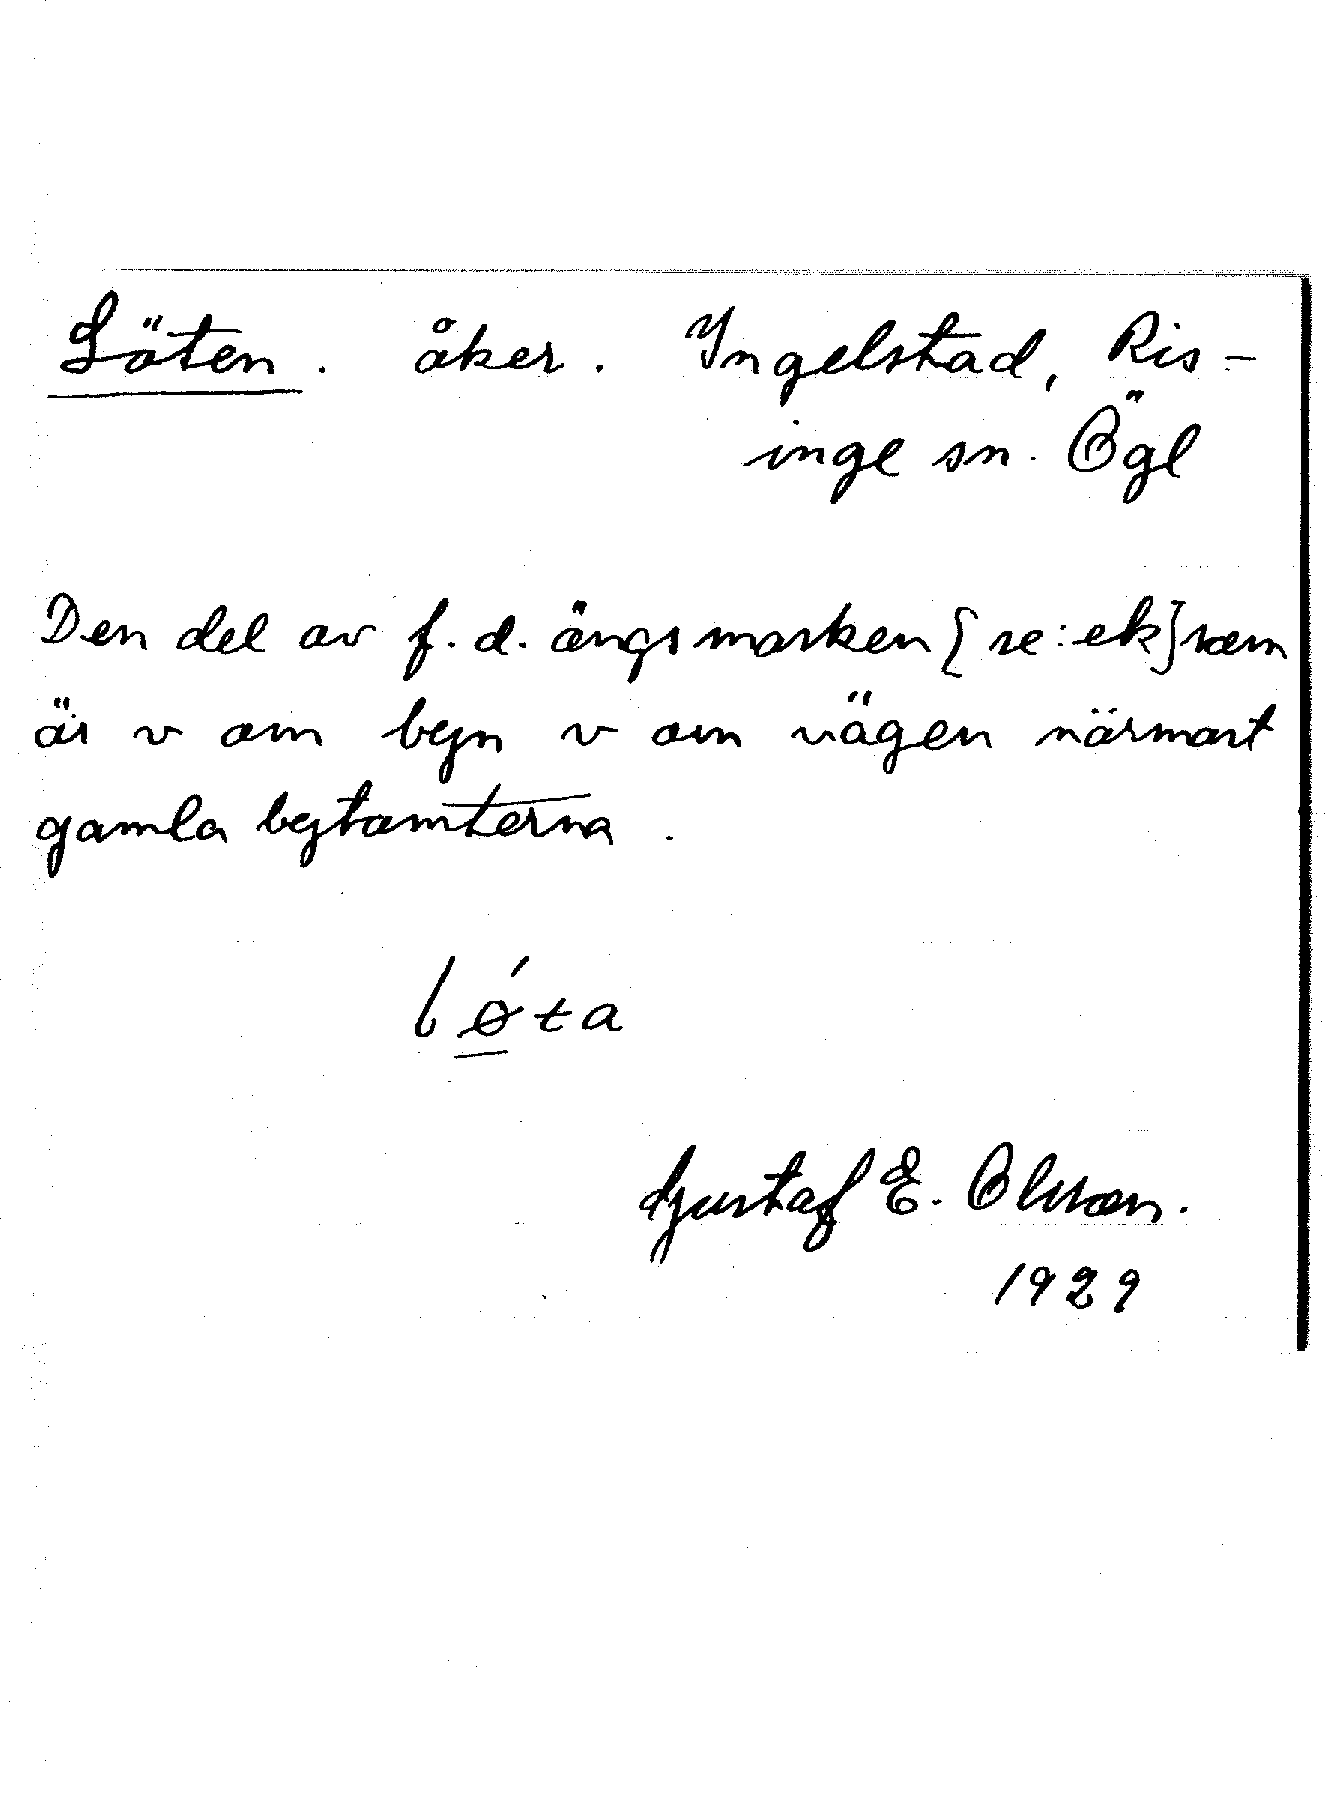 Löten. åker. Ingelstad, Ris-
inge sn. Ögl
Den del av f.d. ängsmarken [se: ek] som
är v om byn v om vägen närmast
gamla bytomterna.
lǿta
Gustaf E. Olsson.
1929